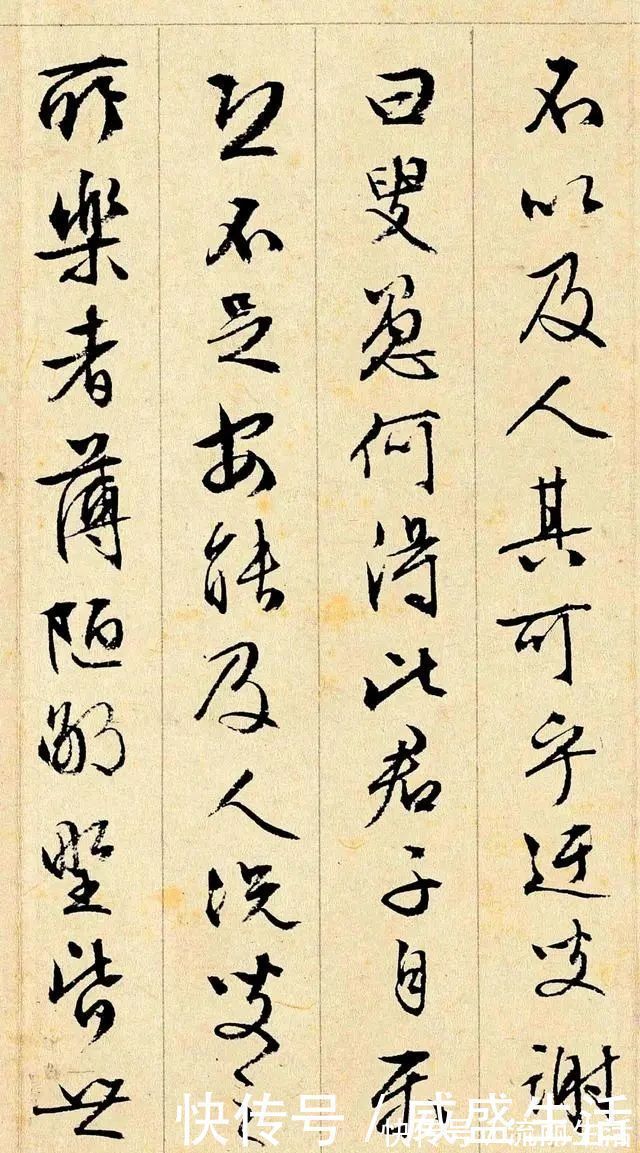 不以及人其可乎迂叟謝
曰叟愚何得比君子自樂
恐不足安能及人況叟之
所樂者薄陋鄙野皆世
快传号 / 威盛生活